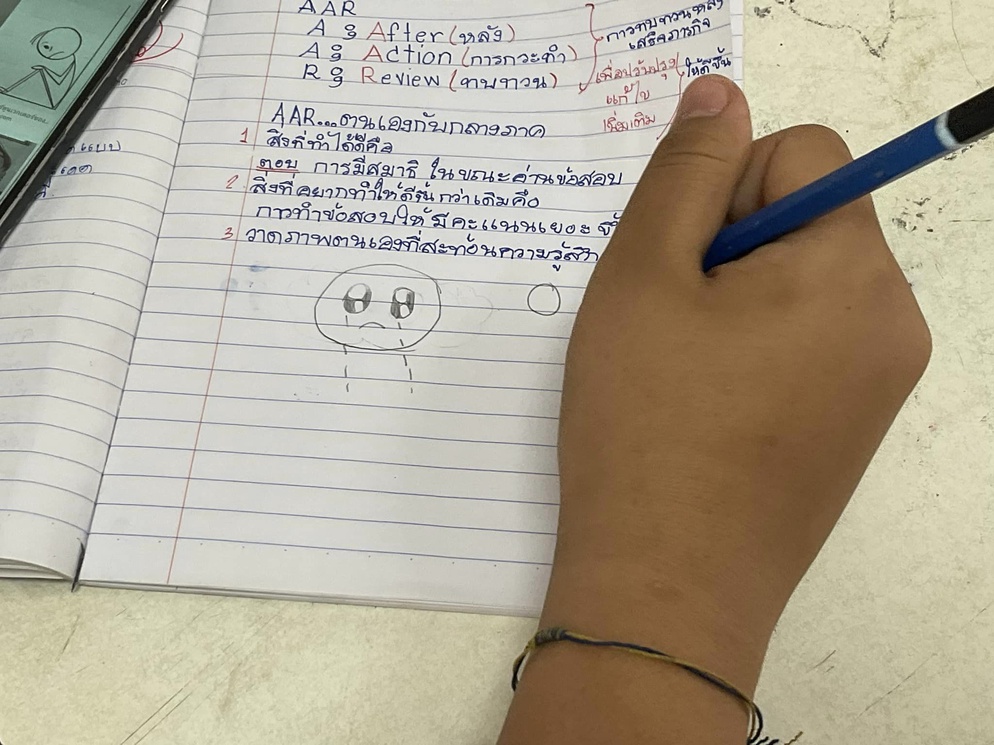 AAR
A : After (หลัง)
A : Action (การกระทำ)
R : Review (ทบทวน)
การทบทวนหลัง
เสร็จภารกิจ
เพื่อปรับปรุง
แก้ไข
เพิ่มเติม
ให้ดีขึ้น
AAR...ตนเองกับกลางภาค
1 สิ่งที่ทำได้ดีคือ
ตอบ การมีสมาธิ ในขณะอ่านข้อสอบ
2 สิ่งที่อยากทำให้ดีขึ้นกว่าเดิมคือ
การทำข้อสอบให้มีคะแนนเยอะ
3 วาดภาพตนเองที่สะท้อนความรู้สึก